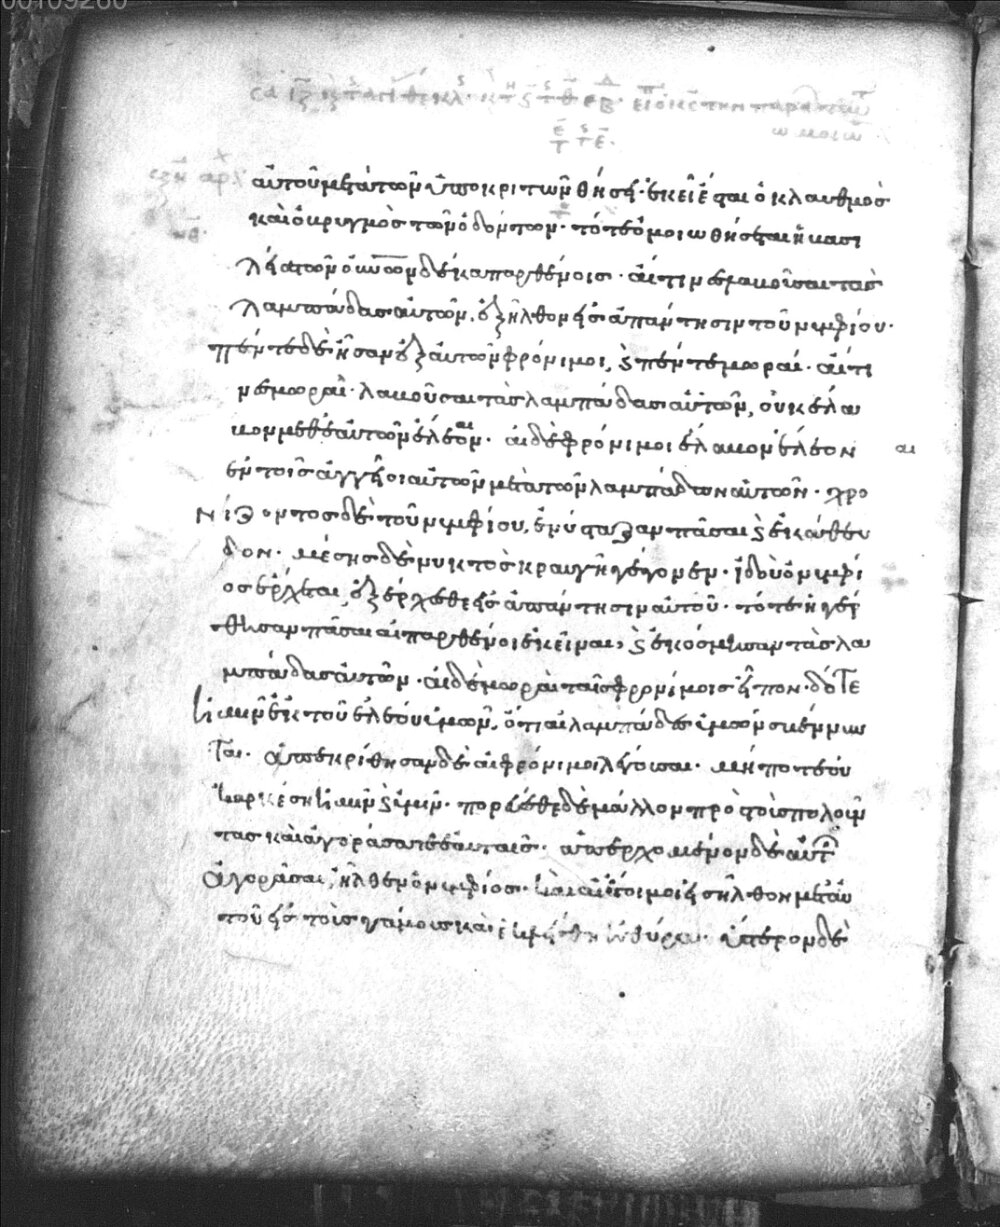 00109260
αὐτοῦ μετὰ τῶν ὑποκριτῶν θήσει· ἐκεῖ ἔσται ὁ κλαυθμὸς
καὶ ὁ βρυγμὸς τῶν ὀδόντων· τότε ὁμοιωθήσεται ἡ βασι
λεία τῶν οὐνῶν δέκα παρθένοις· αἵτινες λαβοῦσαι τὰς
λαμπάδας αὐτῶν, ἐξῆλθον εἰς ἀπάντησιν τοῦ νυμφίου·
πέντε δὲ ἦσαν ἐξ αὐτῶν φρόνιμοι, ϗ πέντε μωραί· αἵτι
νες μωραὶ· λαβοῦσαι τὰς λαμπάδας αὐτῶν, οὐκ ἔλα
βον μεθ' ἑαυτῶν ἔλεον· αἱ δὲ φρόνιμοι ἔλαβον ἔλεον
ἐν τοῖς ἀγγείοις αὐτῶν μετὰ τῶν λαμπάδων αὐτῶν· χρο
νίζοντος δὲ τοῦ νυμφίου, ἐνύσταξαν πᾶσαι ϗ ἐκάθευ
δον· μέσης δὲ νυκτὸς κραυγὴ γέγονεν· ἰδοὺ ὁ νυμφί
ος ἔρχεται, ἐξέρχεσθε εἰς ἀπάντησιν αὐτοῦ· τότε ἠγέρ
θησαν πᾶσαι αἱ παρθένοι ἐκεῖναι, ϗ ἐκόσμησαν τὰς λα
μπάδας αὐτῶν· αἱ δὲ μωραὶ ταῖς φρονίμοις εἶπον· δότε
ἡμῖν ἐκ τοῦ ἐλέου ὑμῶν, ὅτι αἱ λαμπάδες ἡμῶν σβέννυν
ται· ἀπεκρίθησαν δὲ αἱ φρόνιμοι λέγουσαι· μήποτε οὐ
κ ἀρκέσῃ ἡμῖν ϗ ὑμῖν· πορεύεσθε δὲ μάλλον πρὸς τοὺς πολοῦν
τας καὶ ἀγοράσατε ἑαυταῖς· ἀπερχομένον δὲ αὐτ
ἀγοράσαι, ἦλθεν ὁ νυμφίος· καὶ αἱ ἕτοιμοι εἰσῆλθον μετ' αὐ
τοῦ εἰς τοὺς γάμους καὶ ἐκλείσθη ἡ θύρα· ὕστερον δὲ